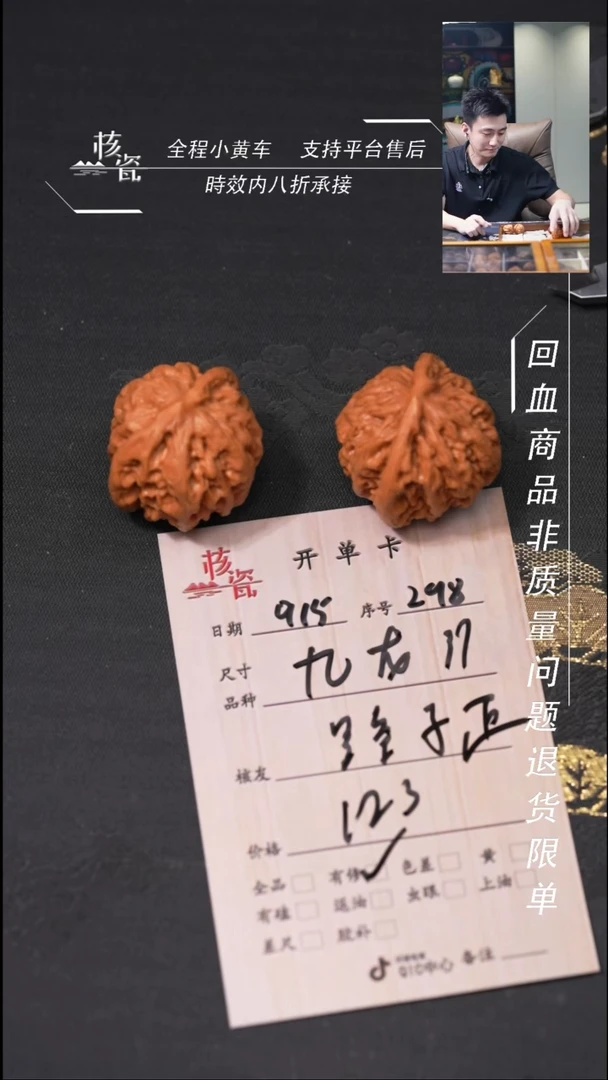 核瓷
全程小黄车 支持平台售后
時效内八折承接
回血商品非质量问题退货限单
核瓷
开单卡
日期 915 序号 298
尺寸
品种 九龙 37
核友
价格 123
全品 有修 色差 黄
有硅 返油 虫眼 上油
差尺 胶补
QIC中心 备注